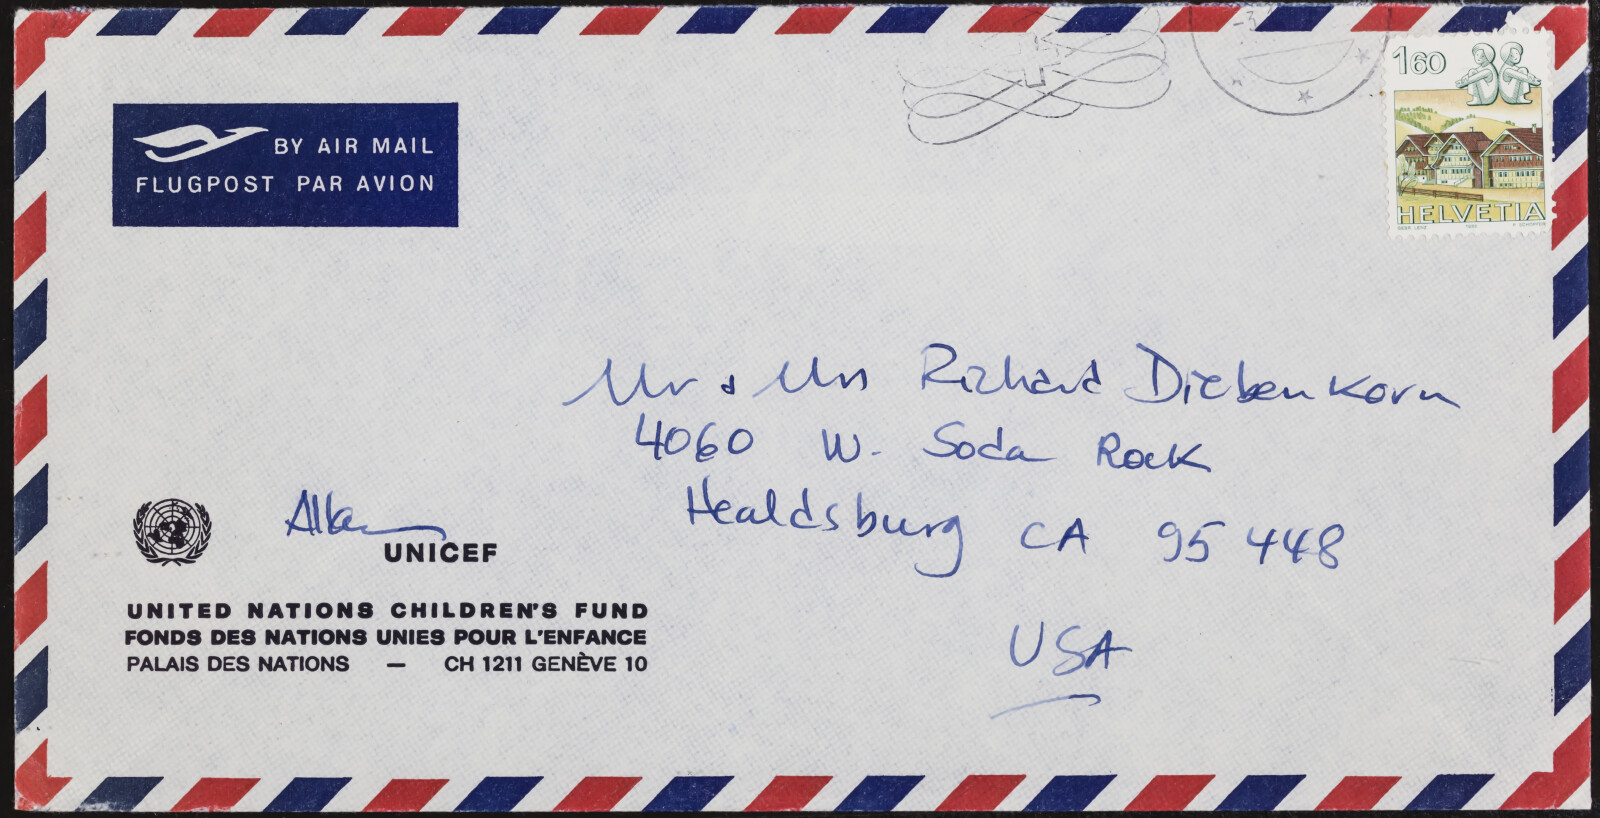 1 60
HELVETIA
BY AIR MAIL
FLUGPOST PAR AVION
Mr & Mrs Richard Diebenkorn
4060 W. Soda Rock
Healdsburg CA 95448
USA
UNICEF
UNITED NATIONS CHILDREN'S FUND
FONDS DES NATIONS UNIES POUR L'ENFANCE
PALAIS DES NATIONS — CH 1211 GENÈVE 10